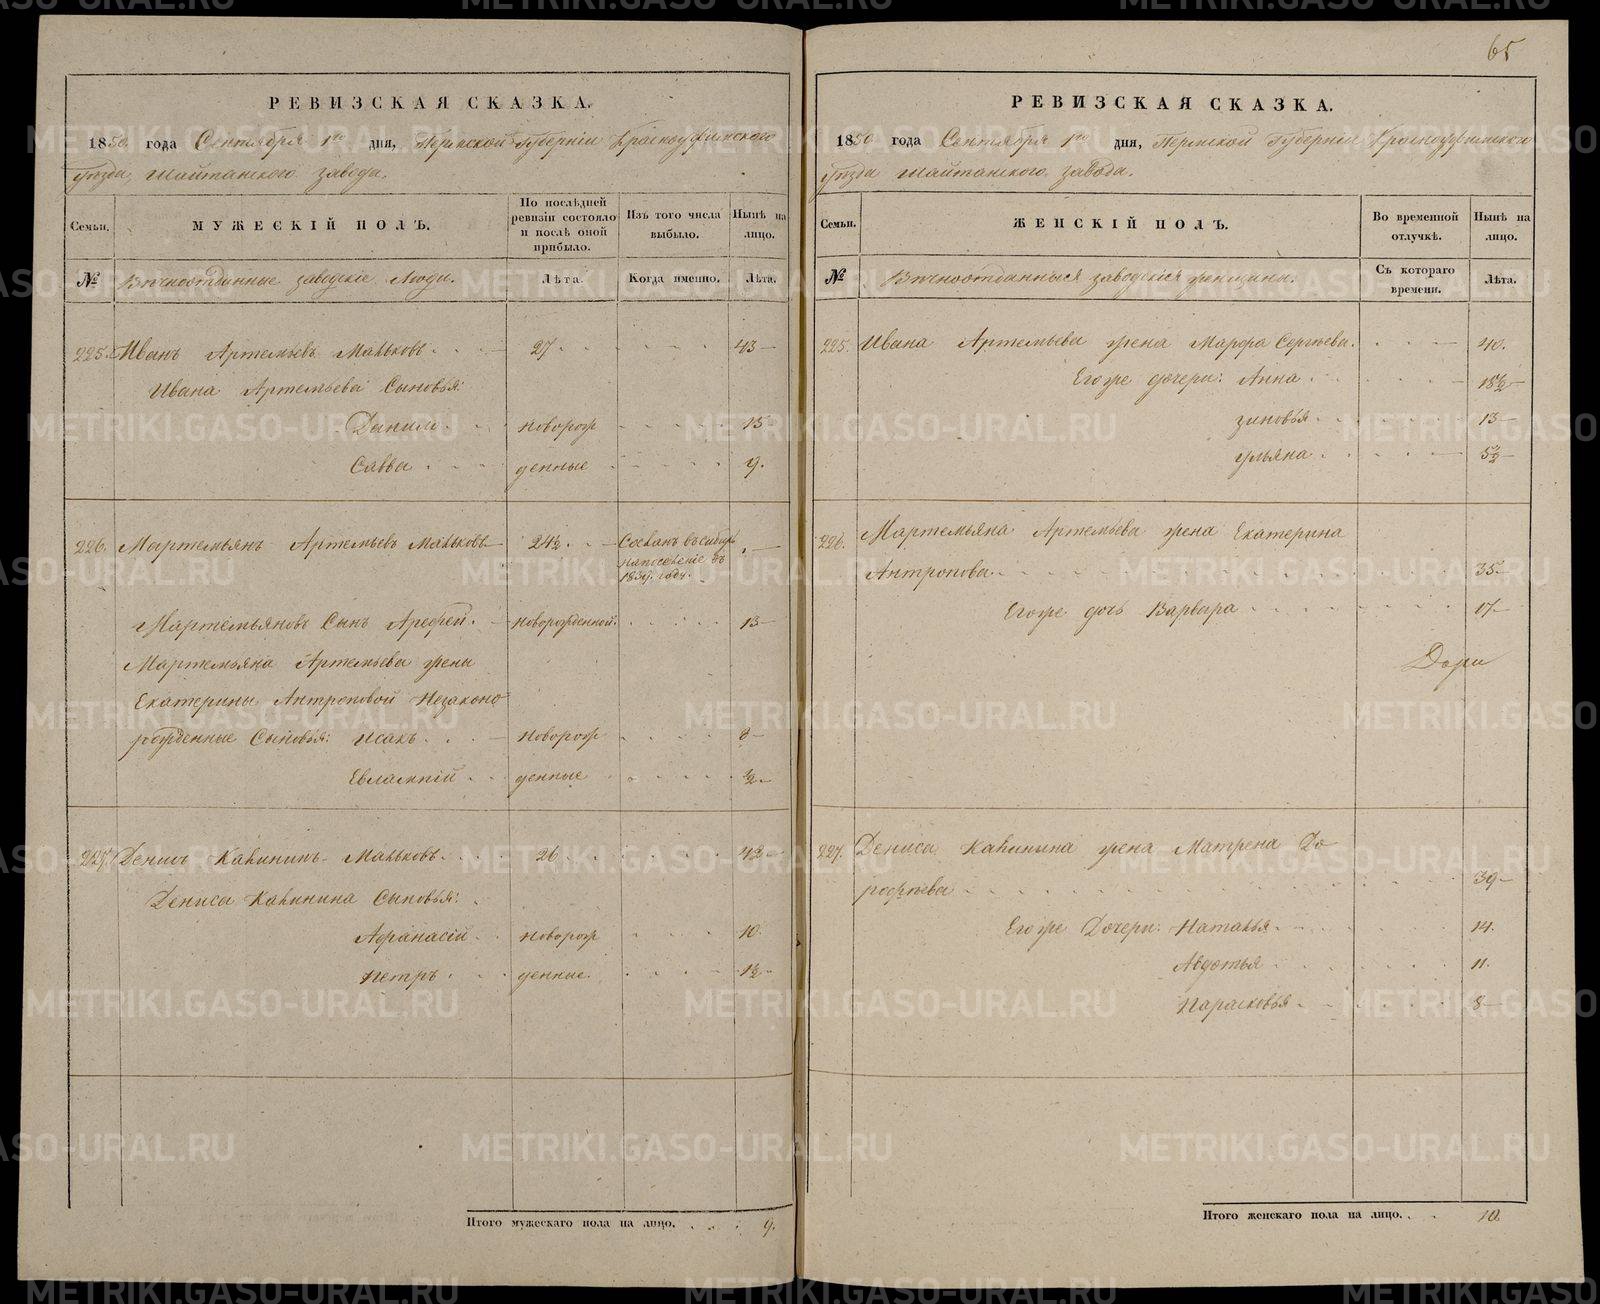 65
РЕВИЗСКАЯ СКАЗКА.
1850 года Сентября 1го дня, Пермской Губерніи Красноуфимскаго
уѣзда, Шайтанскаго завода.
Семьи.
МУЖЕСКІЙ ПОЛЪ.
По послѣдней ревизіи состояло и послѣ оной прибыло.
Изъ того числа выбыло.
Нынѣ на лицо.
№
Вѣчноотданные заводскіе Люди.
Лѣта.
Когда именно.
Лѣта.
225. Иванъ Артемьевъ Мальковъ 27 43
Ивана Артемьева Сыновья:
Данило новорож 15
Савва денные 9.
226. Мартемьянъ Артемьевъ Мальковъ 24½ Сосланъ въ сибирь
на поселеніе въ
1839. году.
Мартемьяновъ Сынъ Арефей. новорожденной. 13
Мартемьяна Артемьева жены
Екатерины Антроповой Незаконо
рожденные Сыновья: Исакъ новорож 8
Евлампій денные ½
227. Денисъ Калининъ Мальковъ. 26 42
Дениса Калинина Сыновья:
Афанасій новорож 10.
Петръ денные. 1½
Итого мужескаго пола на лицо. 9.
РЕВИЗСКАЯ СКАЗКА.
1850 года Сентября 1го дня, Пермской Губерніи Красноуфимскаго
уѣзда Шайтанскаго завода.
Семьи.
ЖЕНСКІЙ ПОЛЪ.
Во временной отлучкѣ.
Нынѣ на лицо.
№
Вѣчноотданныя заводскія женщины.
Съ котораго времени.
Лѣта.
225. Ивана Артемьева жена Марфа Сергѣева. 40.
Его же дочери: Анна 18½
Зиновья 13
Ульяна 5½
226. Мартемьяна Артемьева жена Екатерина
Антропова. 35
Его же дочь Варвара 17
227. Дениса Калинина жена Матрена До
рофѣева 39
Его же Дочери: Наталья 14.
Авдотья 11.
Парасковья 8
Итого женскаго пола на лицо. 10.
METRIKI.GASO-URAL.RU